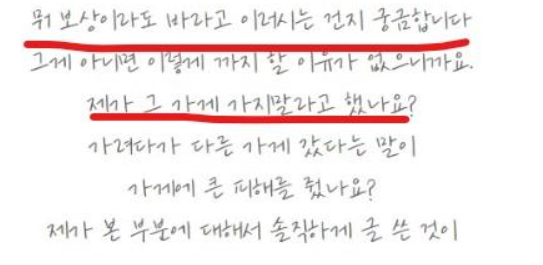 뭐 보상이라도 바라고 이러시는 건지 궁금합니다
그게 아니면 이렇게 까지 할 이유가 없으니까요.
제가 그 가게 가지말라고 했나요?
가려다가 다른 가게 갔다는 말이
가게에 큰 피해를 줬나요?
제가 본 부분에 대해서 솔직하게 글 쓴 것이